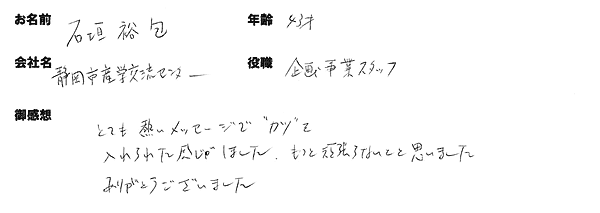 お名前 石垣 裕包 年齢 43才
会社名 静岡市産学交流センター 役職 企画事業スタッフ
御感想
とても熱いメッセージで"カツ"を
入れられた感じがしました。もっと頑張らないとと思いました
ありがとうございました